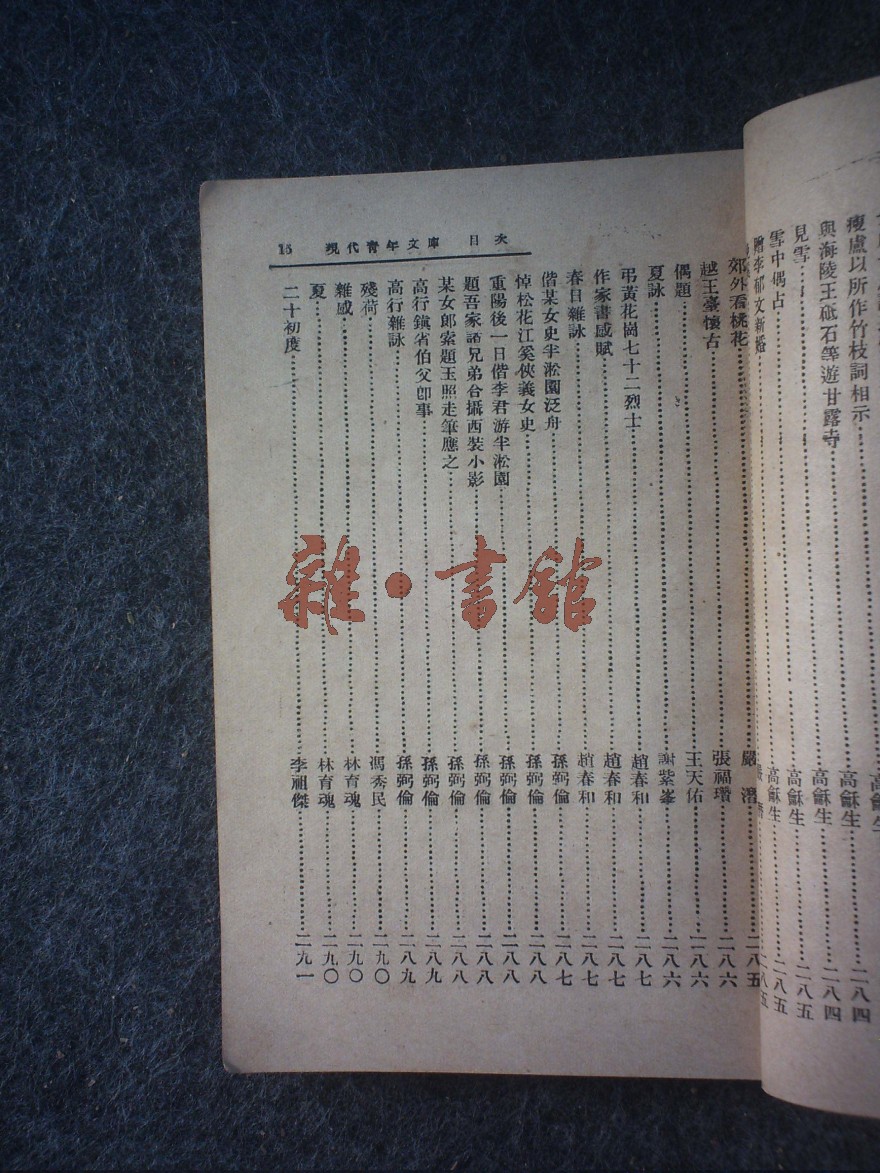 瘦盧以所作竹枝詞相示 高龢生 二八四
與海陵王砥石等遊甘露寺 高龢生 二八四
見雪 高龢生 二八五
雪中偶占 高龢生 二八五
贈李郁文新婚 二八五
15 現代青年文庫 目次
郊外看桃花 嚴 二八五
越王臺懷古 張福瓚 二八六
偶題 王天佑 二八六
夏詠 謝紫峯 二八六
弔黃花崗七十二烈士 趙春和 二八七
作家書感賦 趙春和 二八七
春日雜詠 趙春和 二八七
偕某女史半淞園泛舟 孫弼倫 二八七
悼松花江奚俠義女史 孫弼倫 二八八
重陽後一日偕李君游半淞園 孫弼倫 二八八
題吾家諸兄弟合攝西裝小影 孫弼倫 二八八
某女郎索題玉照走筆應之 孫弼倫 二八八
高行鎮省伯父卽事 孫弼倫 二八九
高行雜詠 孫弼倫 二八九
殘荷 馮秀民 二九〇
雜感 林育魂 二九〇
夏 林育魂 二九〇
二十初度 李祖傑 二九一
雜·書館